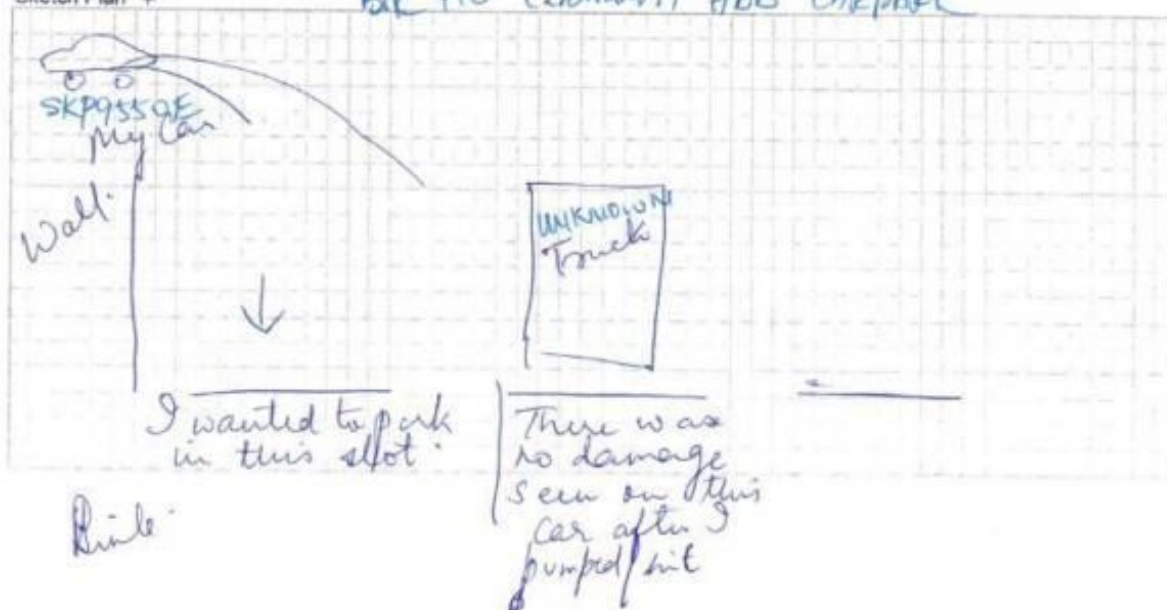 Sketch Plan
HDB CARPARK
My Car
Wall.
UNKNOWN
Truck
I wanted to park
in this slot.
There was
no damage
seen on this
car after I
pumped/hit